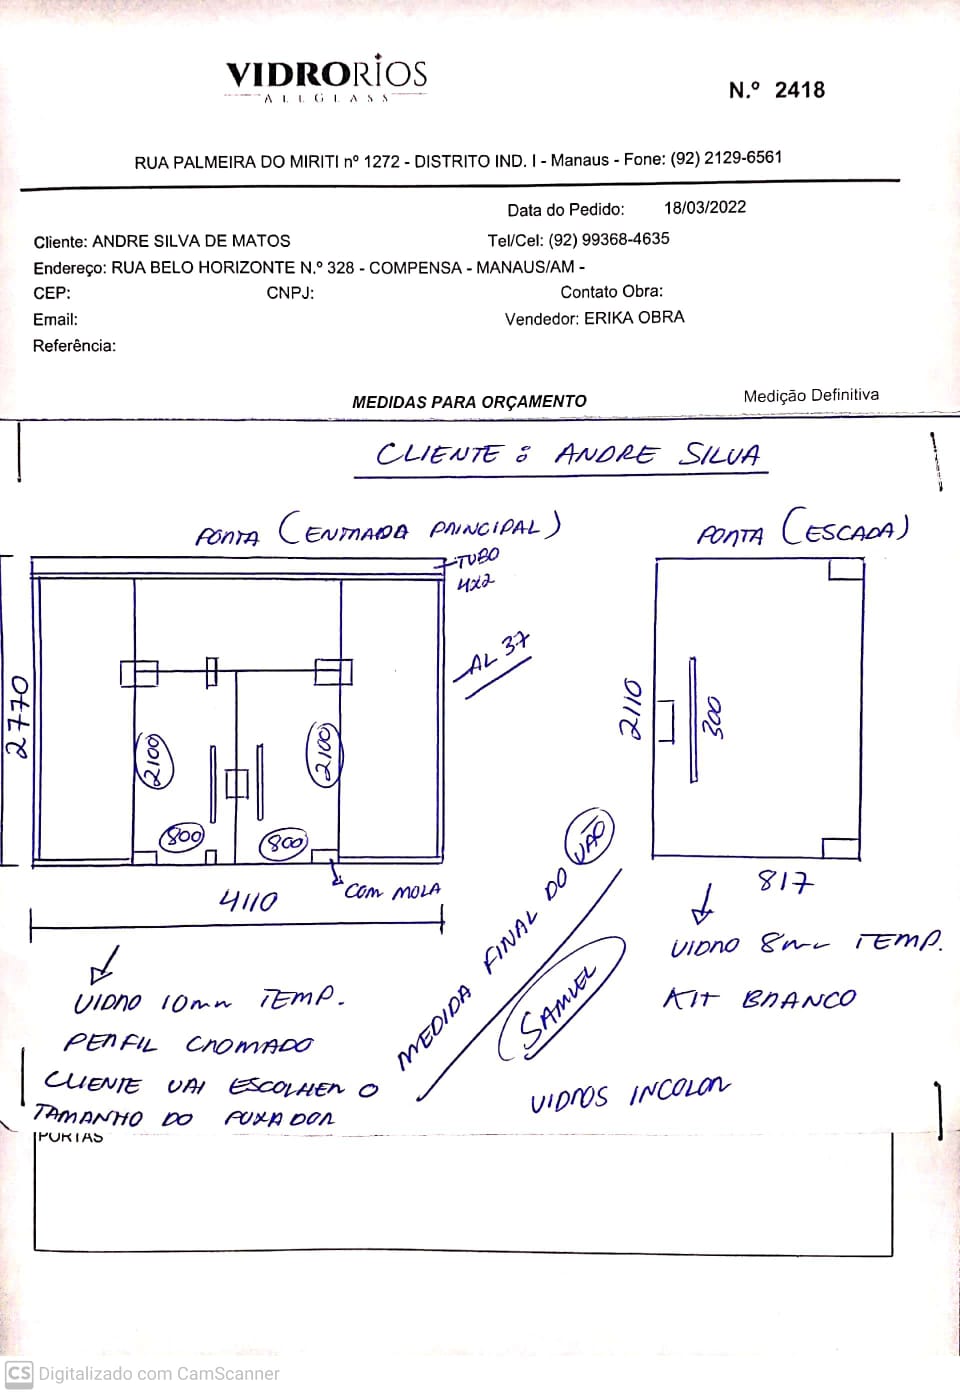 VIDRORIOS
ALLGLASS
N.º 2418
RUA PALMEIRA DO MIRITI nº 1272 - DISTRITO IND. I - Manaus - Fone: (92) 2129-6561
Data do Pedido: 18/03/2022
Cliente: ANDRE SILVA DE MATOS Tel/Cel: (92) 99368-4635
Endereço: RUA BELO HORIZONTE N.º 328 - COMPENSA - MANAUS/AM -
CEP: CNPJ: Contato Obra:
Email: Vendedor: ERIKA OBRA
Referência:
MEDIDAS PARA ORÇAMENTO Medição Definitiva
CLIENTE : ANDRE SILVA
PORTA (ENTRADA PRINCIPAL)
PORTA (ESCADA)
TUBO
4x2
AL 37
2770
2100
2100
800
800
COM MOLA
4110
2110
300
817
MEDIDA FINAL DO VÃO
SAMUEL
VIDRO 10mm TEMP.
PERFIL CROMADO
CLIENTE VAI ESCOLHER O
TAMANHO DO PUXADOR
VIDRO 8mm TEMP.
KIT BRANCO
VIDROS INCOLOR
PORTAS
CS Digitalizado com CamScanner